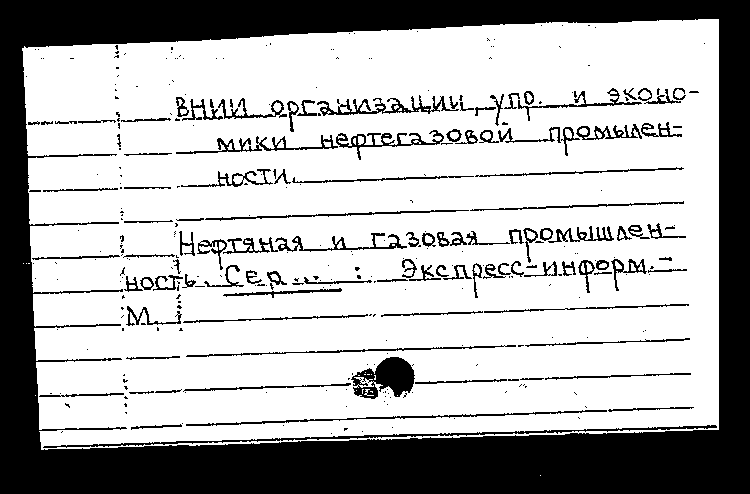 ВНИИ организации, упр. и эконо-
мики нефтегазовой промылен-
ности.
Нефтяная и газовая промышлен-
ность. Сер... : Экспресс-информ.-
М.